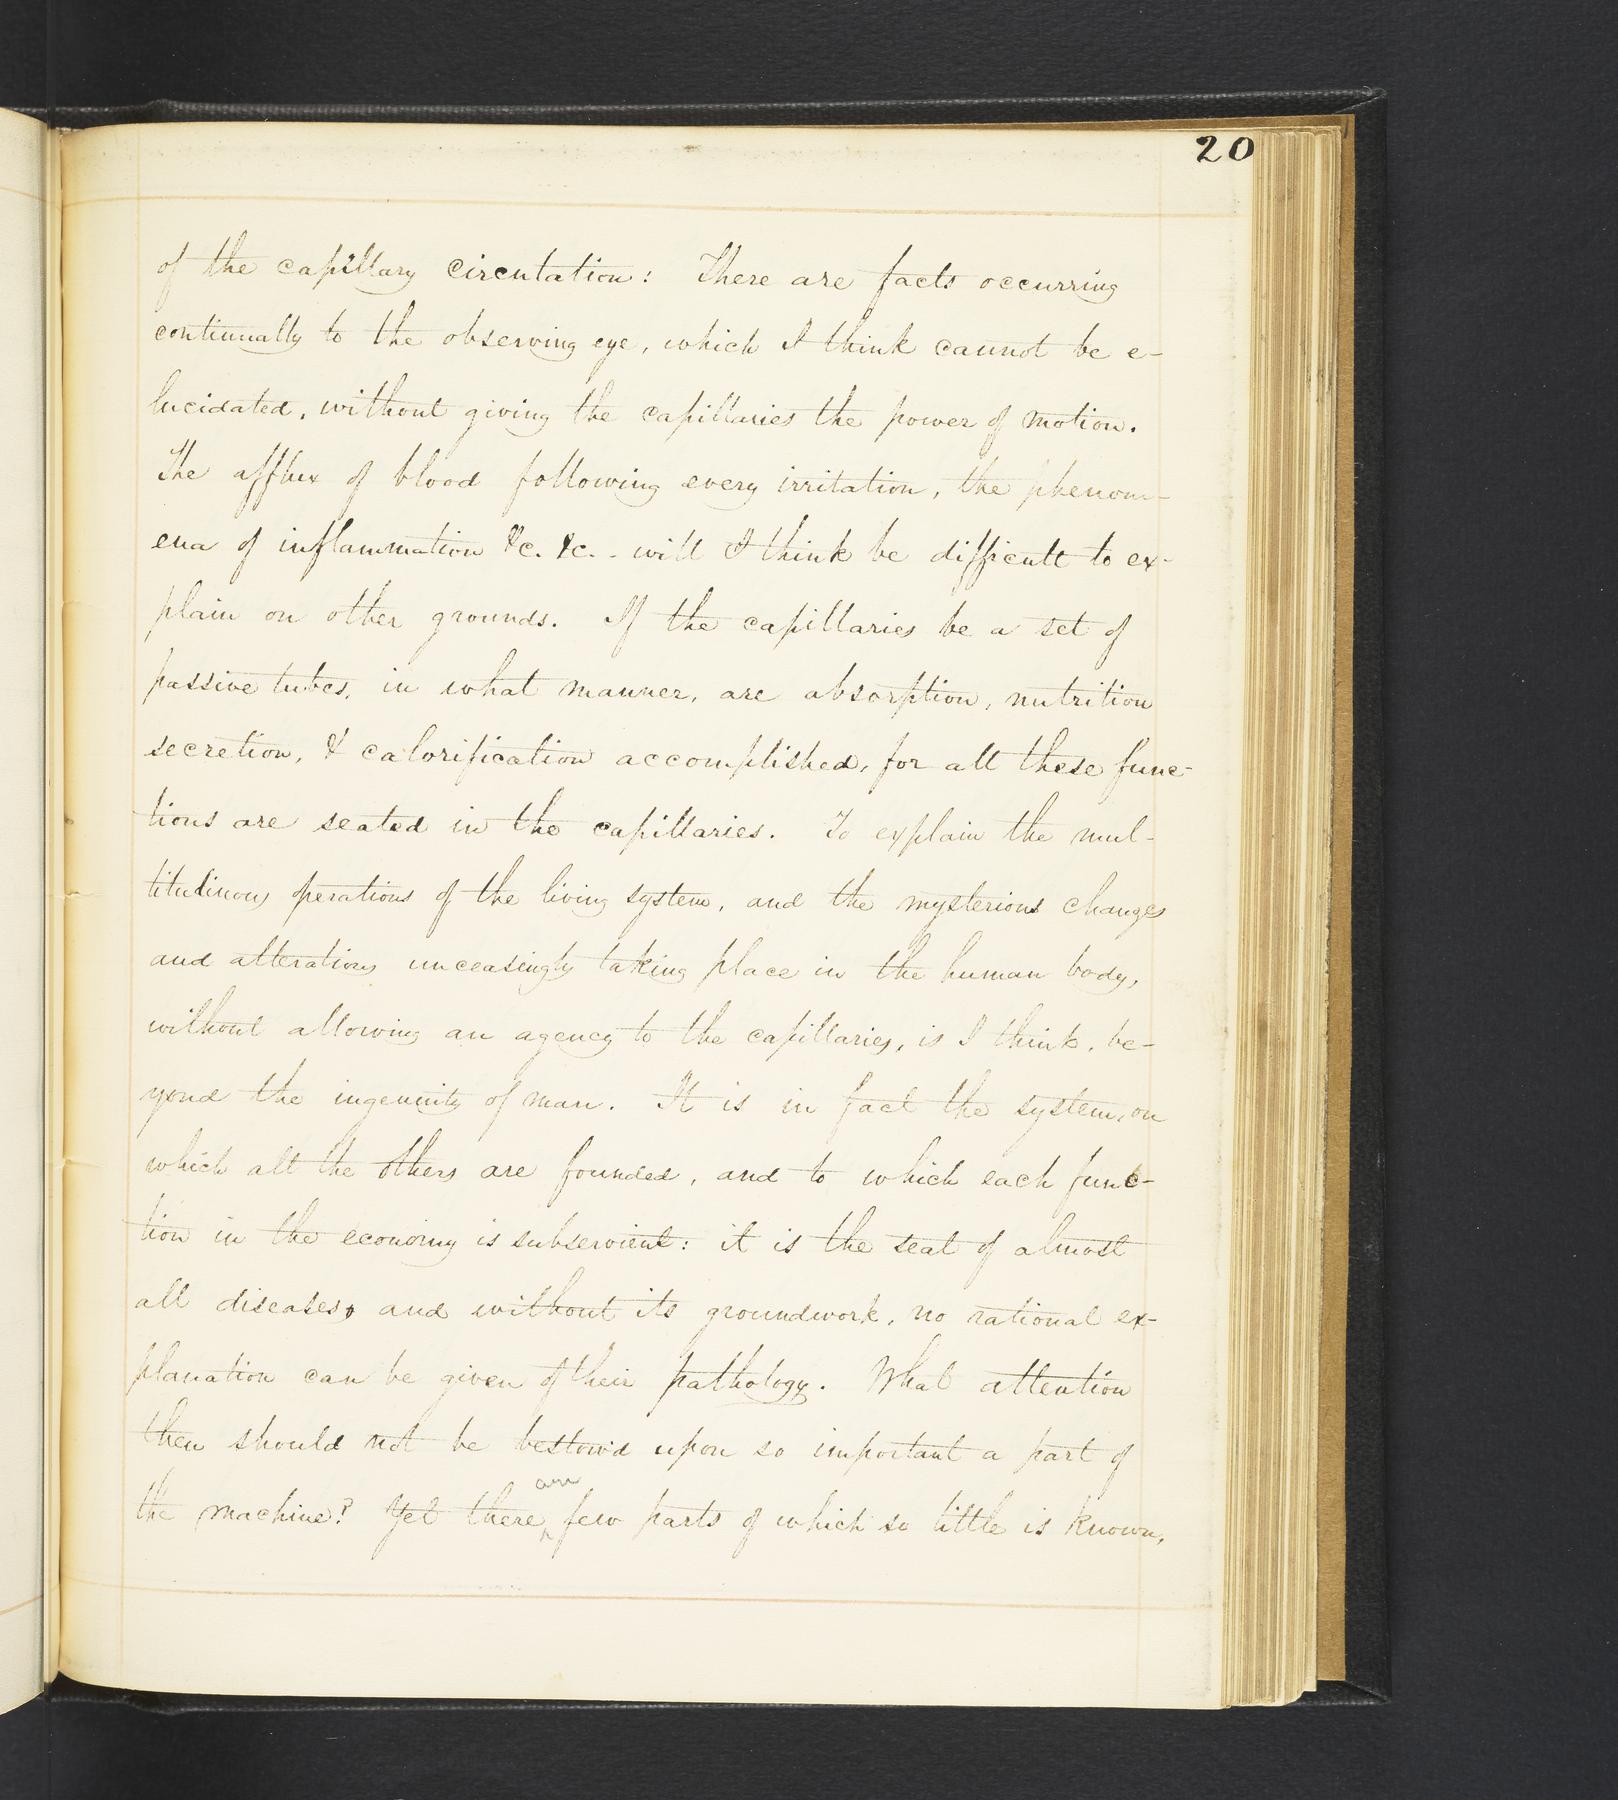 20
of the capillary circulation: There are facts occurring
continually to the observing eye, which I think cannot be e-
lucidated, without giving the capillaries the power of motion.
The afflux of blood following every irritation, the phenom-
ena of inflammation &c. &c. - will I think be difficult to ex-
plain on other grounds. If the capillaries be a set of
passive tubes, in what manner, are absorption, nutrition
secretion, & calorification accomplished, for all these func-
tions are seated in the capillaries. To explain the mul-
titudinous operations of the living system, and the mysterious changes
and alterations unceasingly taking place in the human body,
without allowing an agency to the capillaries, is I think, be-
yond the ingenuity of man. It is in fact the system, on
which all the others are founded, and to which each func-
tion in the economy is subservient: it is the seat of almost
all diseases, and without its groundwork, no rational ex-
planation can be given of their pathology. What attention
then should not be bestow'd upon so important a part of
are
the machine? Yet there ^ few parts of which so little is known,